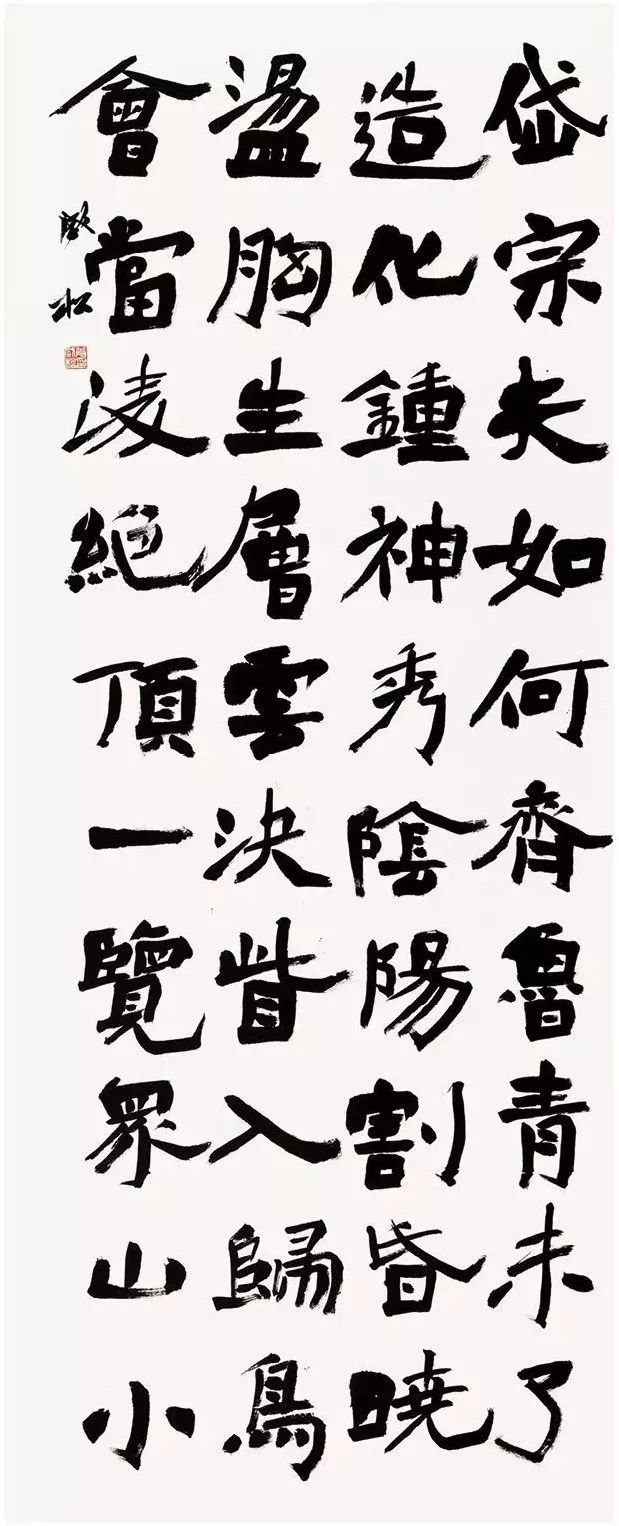 岱宗夫如何齊魯青未了
造化鍾神秀陰陽割昏曉
盪胸生層雲決眥入歸鳥
會當淩絕頂一覽眾山小